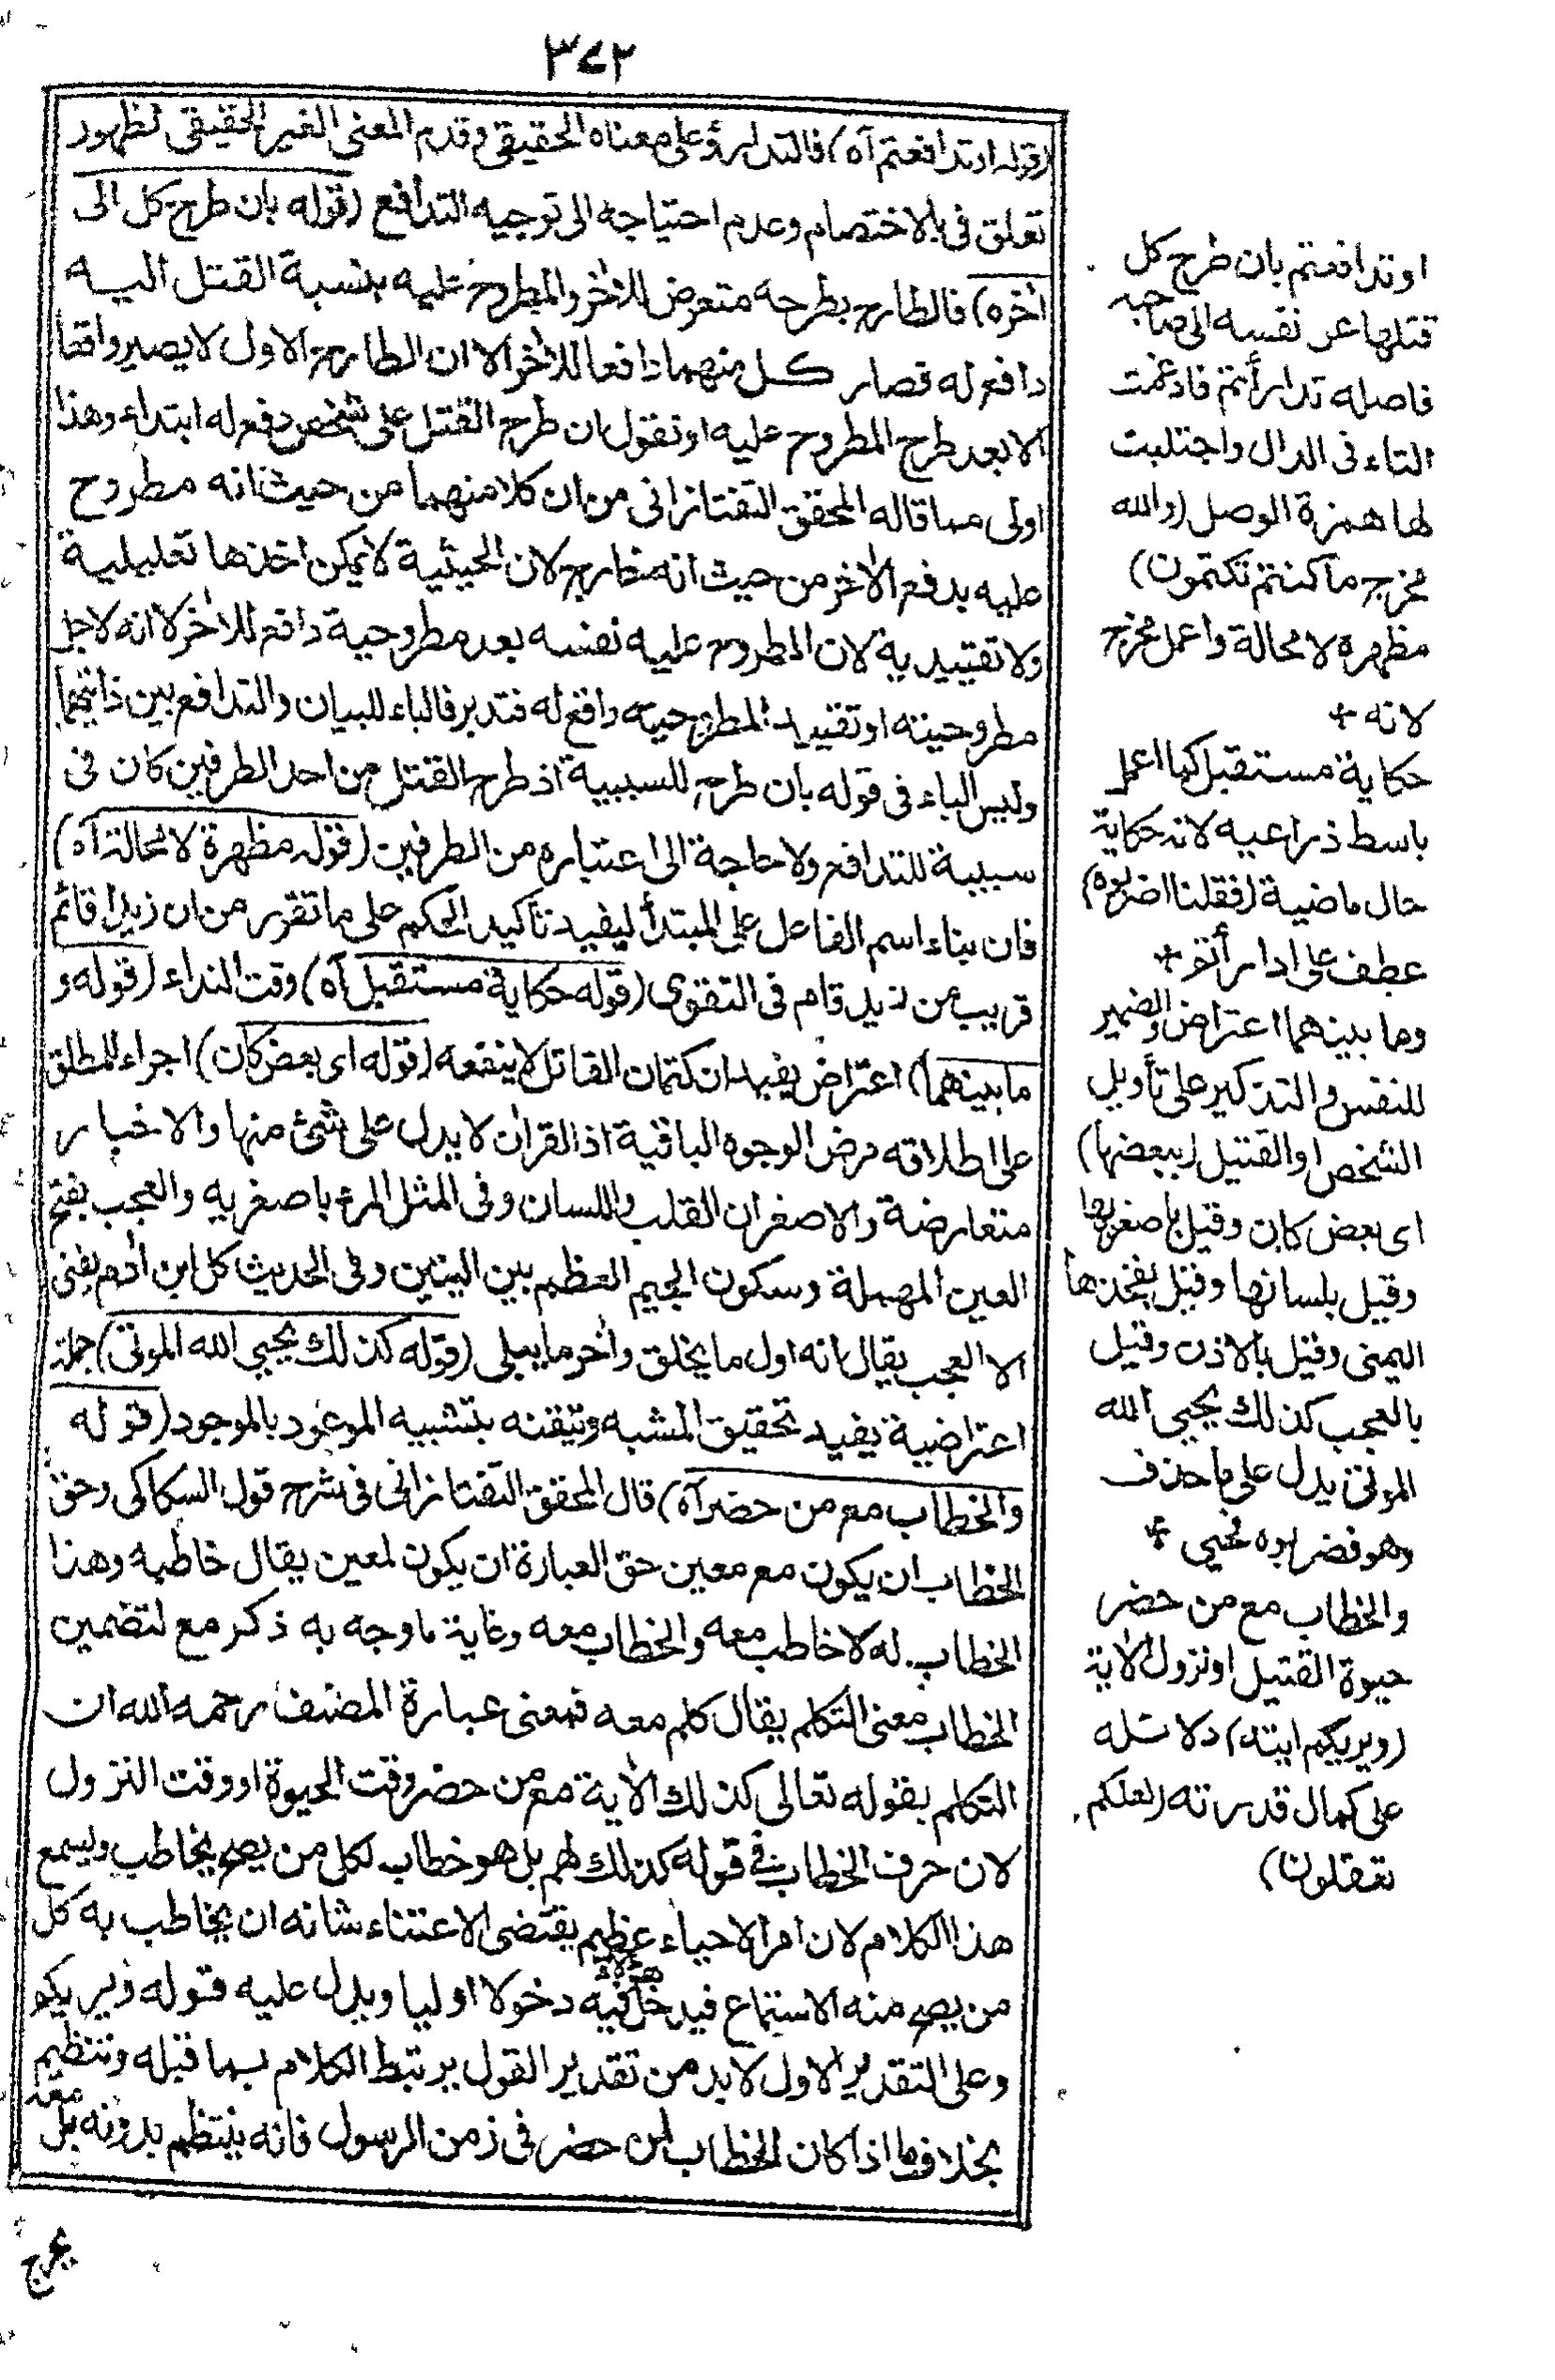 ٣٧٢
(قوله او تدافعتم آه) فالتدارؤ على معناه الحقيقى وقدم المعنى الغير الحقيقى لظهور
تعلق فى بالاختصام وعدم احتياجه الى توجيه التدافع (قوله بان طرح كل الى
اخره) فالطارح بطرحه متعرض للاخر والمطروح عليه بنسبة القتل اليه
دافع له فصار كل منهما دافعا للاخر الا ان الطارح الاول لا يصير دافعا
الا بعد طرح المطروح عليه او نقول ان طرح القتل على شخص دفع له ابتداء وهذا
اولى مما قاله المحقق التفتازانى من ان كلا منهما من حيث انه مطروح
عليه يدفع الاخر من حيث انه طارح لان الحيثية لا يمكن اخذها تعليلية
ولا تقييدية لان المطروح عليه نفسه بعد مطروحية دافع للاخر لا انه لاجل
مطروحيته او تقييد المطروحية دافع له فتدبر فالباء للبيان والتدافع بين ذاتيهما
وليس الباء فى قوله بان طرح للسببية اذ طرح القتل من احد الطرفين كان فى
سببية للتدافع ولا حاجة الى اعتباره من الطرفين (قوله مظهرة لا محالة آه)
فان بناء اسم الفاعل على المبتدأ ليفيد تأكيد الحكم على ما تقرر من ان زيدا قائم
قريب من زيد قام فى التقوى (قوله حكاية مستقبل آه) وقت النداء (قوله و
ما بينهما) اعتراض يفيد ان كتمان القاتل لا ينفعه (قوله اى بعض كان) اجراء للمطلق
على اطلاقه مرض الوجوه الباقية اذ القران لا يدل على شئ منها والاخبار
متعارضة والاصغران القلب واللسان وفى المثل المرء باصغريه والعجب بفتح
العين المهملة وسكون الجيم العظم بين اليتين وفى الحديث كل ابن ادم يفنى
الا العجب يقال انه اول ما يخلق واخر ما يبلى (قوله كذلك يحيي الله الموتى) جملة
اعتراضية يفيد تحقيق المشبه وتيقنه بتشبيه الموعود بالموجود (قوله
والخطاب مع من حضر آه) قال المحقق التفتازانى فى شرح قول السكاكى وحق
الخطاب ان يكون مع معين حق العبارة ان يكون لمعين يقال خاطبه وهذا
الخطاب له لا خاطب معه والخطاب معه وغاية ما وجه به ذكر مع لتضمين
الخطاب معنى التكلم يقال كلم معه فمعنى عبارة المصنف رحمه الله ان
التكلم بقوله تعالى كذلك الاية مع من حضر وقت الحيوة او وقت النزول
لان حرف الخطاب فى قوله كذلك لهم بل هو خطاب لكل من يصح يخاطب ويسمع
هذا الكلام لان امر الاحياء عظيم يقتضى الاعتناء شانه ان يخاطب به كل
من يصح منه الاستماع فيدخل فيه هؤلاء دخولا اوليا ويدل عليه قوله ويريكم
وعلى التقدير الاول لا بد من تقدير القول يرتبط الكلام بما قبله وتنتظم معه
بخلاف ما اذا كان الخطاب لمن حضر فى زمن الرسول فانه ينتظم بدونه بل
او تدافعتم بان طرح كل
قتلها عن نفسه الى صاحبه
فاصله تدارأتم فادغمت
التاء فى الدال واجتلبت
لها همزة الوصل (والله
مخرج ما كنتم تكتمون)
مظهره لا محالة واعمل مخرج
لانه *
حكاية مستقبل كما اعمل
باسط ذراعيه لانه حكاية
حال ماضية (فقلنا اضربوه)
عطف على ادارأتم *
وما بينهما اعتراض والضمير
للنفس والتذكير على تأويل
الشخص او القتيل (ببعضها)
اى بعض كان وقيل باصغريها
وقيل بلسانها وقيل بفخذها
اليمنى وقيل بالاذن وقيل
بالعجب كذلك يحيي الله
الموتى يدل على ما حذف
وهو فضربوه فحيي *
والخطاب مع من حضر
حيوة القتيل او نزول الاية
(ويريكم ايته) دلائله
على كمال قدرته (لعلكم
تعقلون)